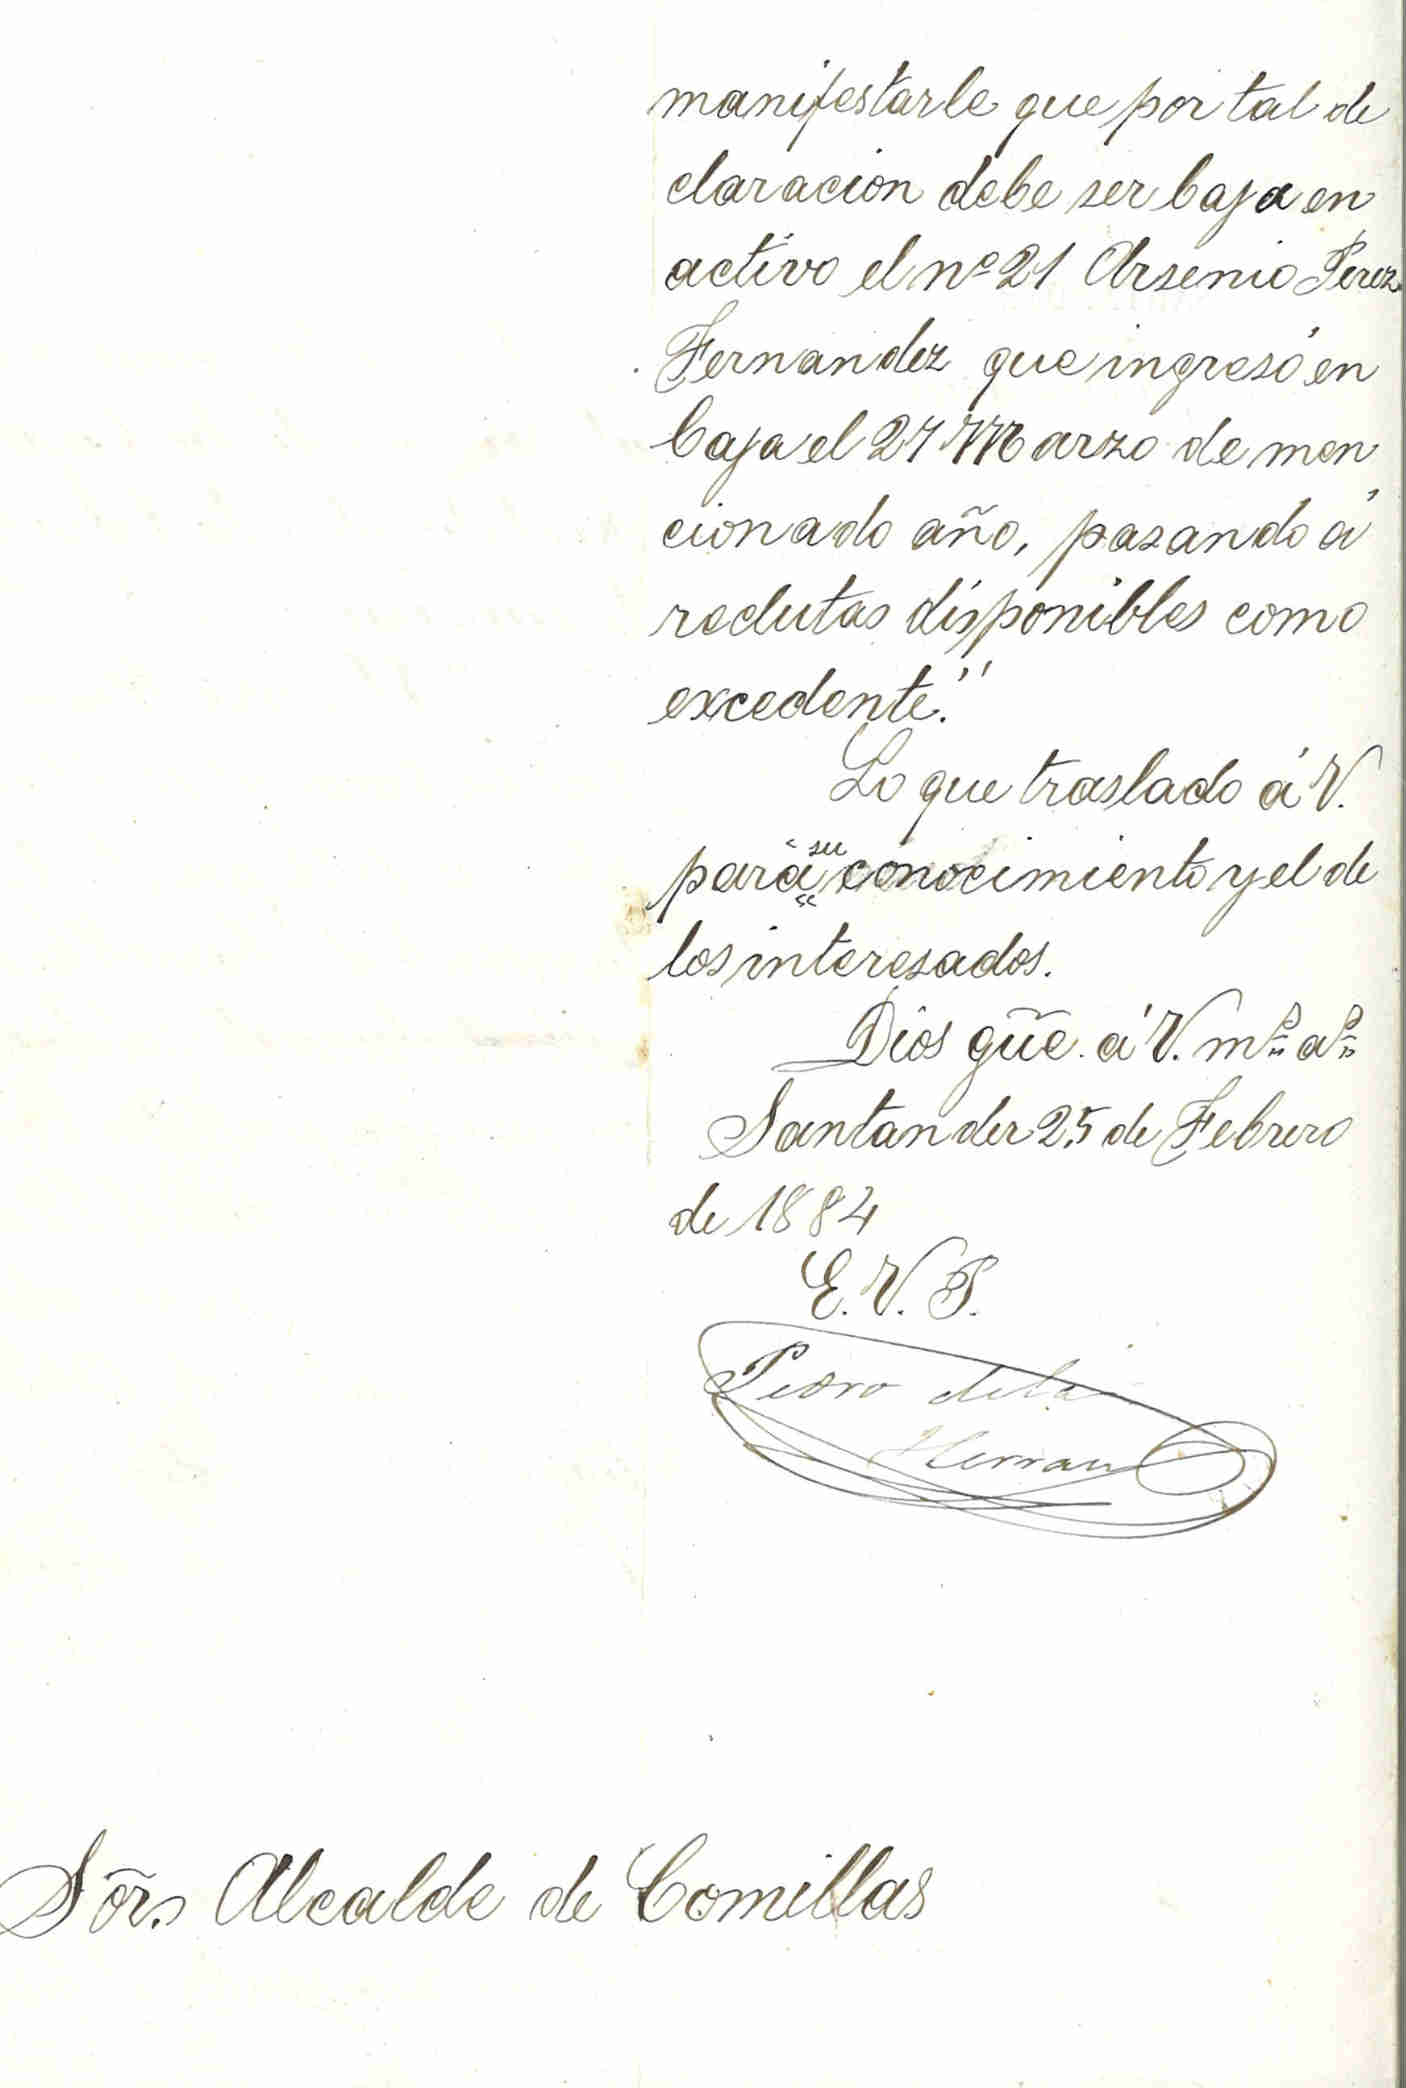 manifestarle que por tal de
claracion debe ser baja en
activo el nº 21 Arsenio Perez
Fernandez que ingresó en
baja el 27 Marzo de men
cionado año, pasando á
reclutas disponibles como
excedente."
Lo que traslado á V.
para su conocimiento y el de
los interesados.
Dios güe. á V. mˢ aˢ
Santander 25 de Febrero
de 1884
E. V. P.
Pedro de la
Herran
Sõr. Alcalde de Comillas